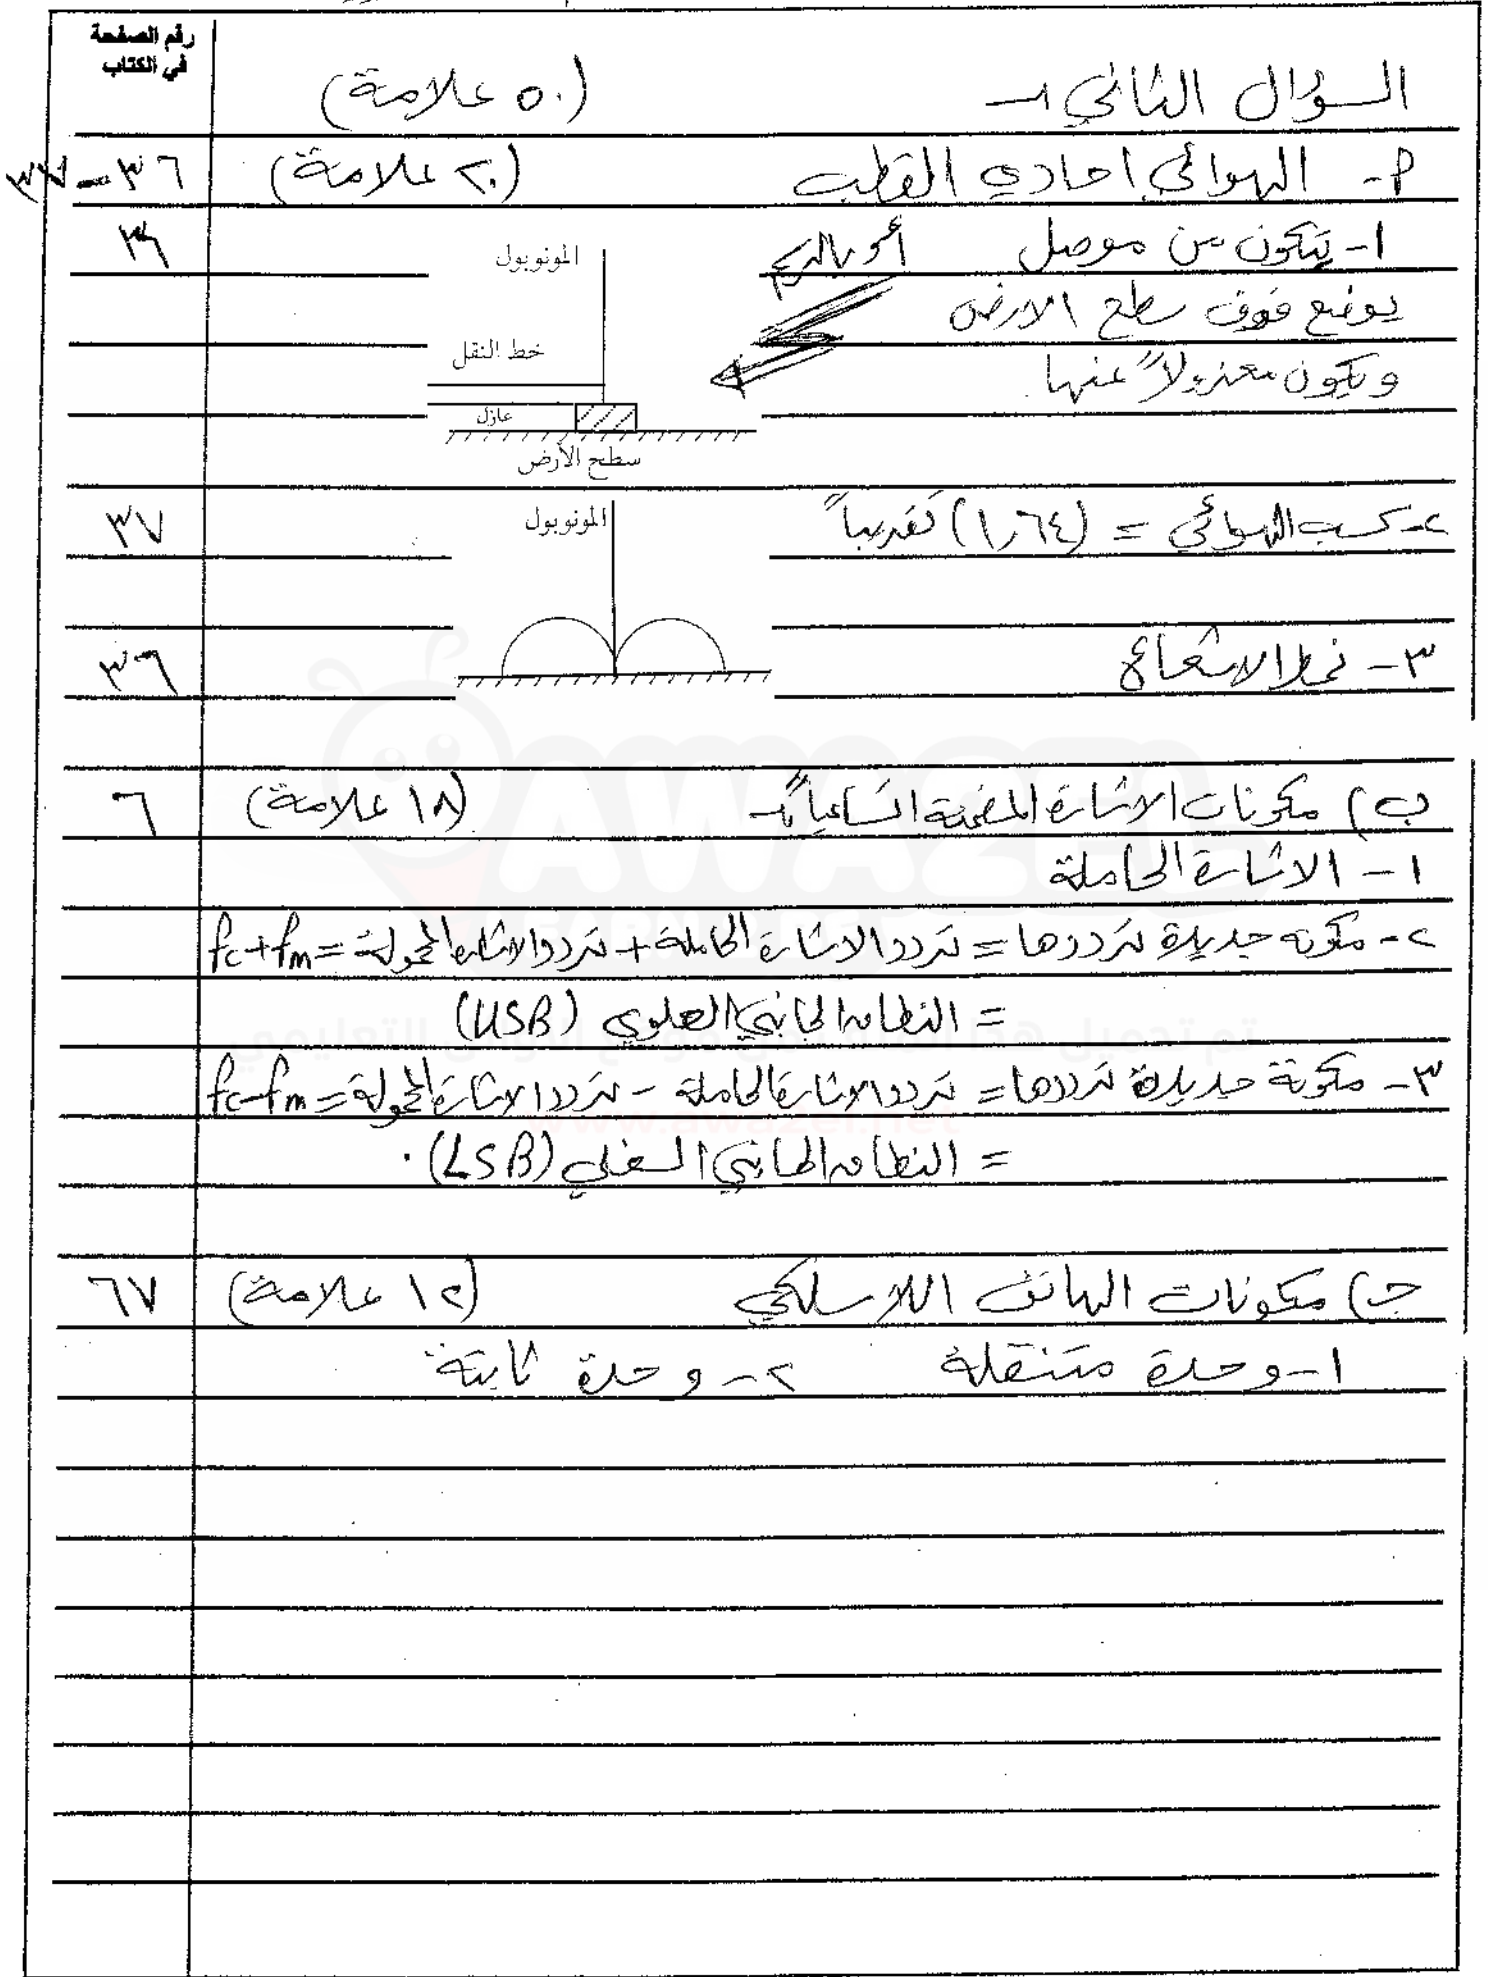 رقم الصفحة
في الكتاب
السؤال الثاني :- (٥٠ علامة)
أ- الهوائي احادي القطب (٢٠ علامة) ٣٦-٣٧
١- يتكون من موصل أو بالرسم ٣٦
يوضع فوق سطح الارض
ويكون معزولاً عنها.
المونوبول
خط النقل
عازل
سطح الأرض
٢- كسب الهوائي = (١,٦٤) تقريباً ٣٧
المونوبول
٣- نمط الاشعاع ٣٦
ب) مكونات الاشارة المضمنة اتساعياً :- (١٨ علامة) ٦
١- الاشارة الحاملة
٢- مكونه جديدة ترددها = تردد الاشارة الحاملة + تردد الاشارة المحمولة = fc+fm
= النطاق الجانبي العلوي (USB)
٣- مكونة جديدة ترددها = تردد الاشارة الحاملة - تردد الاشارة المحمولة = fc-fm
= النطاق الجانبي السفلي (LSB).
ج) مكونات الهاتف اللاسلكي (١٢ علامة) ٦٧
١- وحدة متنقلة ٢- وحدة ثابتة
AWAZEL
LEARN
تم تحميل هذا الملف من موقع الأوائل التعليمي
www.awazel.net